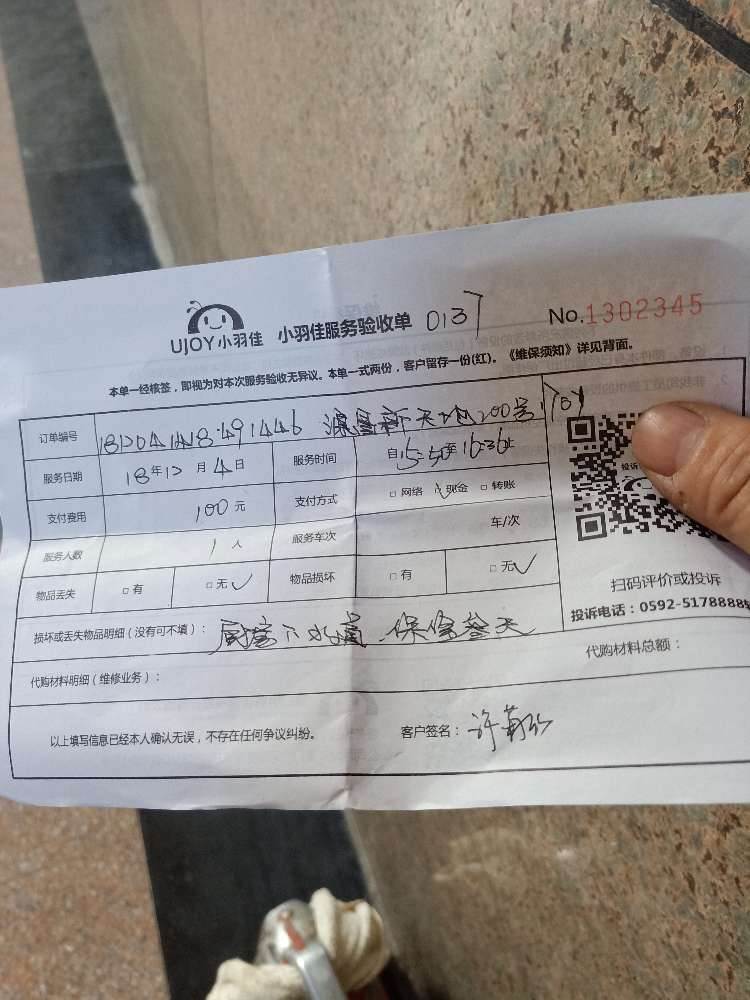 UJOY小羽佳 小羽佳服务验收单 0137 No.1302345
本单一经核签，即视为对本次服务验收无异议。本单一式两份，客户留存一份(红)。《维保须知》详见背面。
订单编号 新天地200号
服务日期 18年12月4日 服务时间 自15:50至16:36止
支付费用 100元 支付方式 □网络 □现金 □转账
服务人数 1人 服务车次 车/次
物品丢失 □有 □无✓ 物品损坏 □有 □无✓
扫码评价或投诉
投诉电话：0592-5178888转
损坏或丢失物品明细（没有可不填）： 下水道 保修叁天
代购材料明细（维修业务）： 代购材料总额：
以上填写信息已经本人确认无误，不存在任何争议纠纷。 客户签名：许